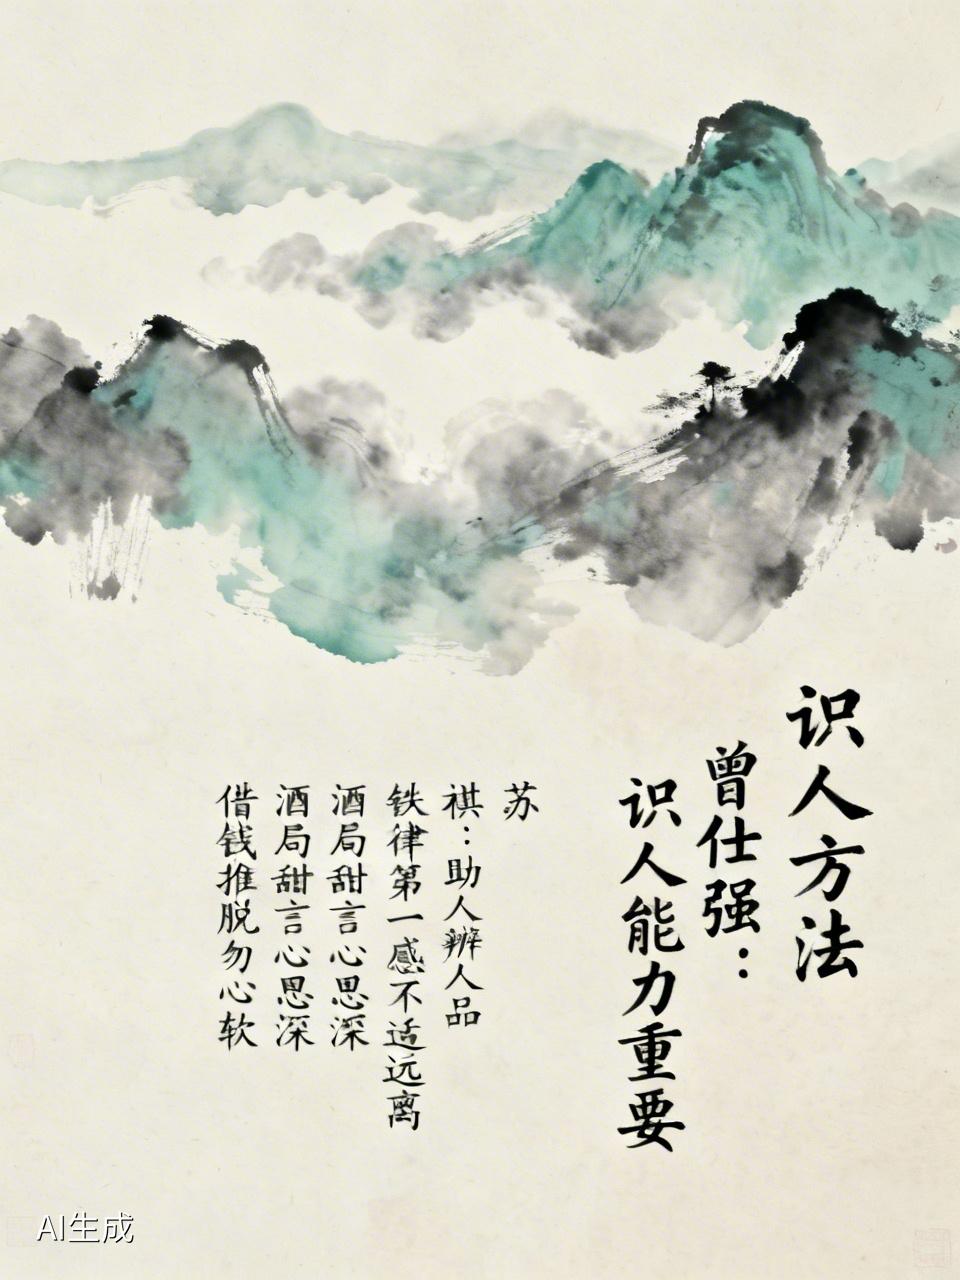 识人方法
曾仕强：
识人能力重要
苏
祺：助人辨人品
铁律第一感不适远离
酒局甜言心思深
酒局甜言心思深
借钱推脱勿心软
AI生成